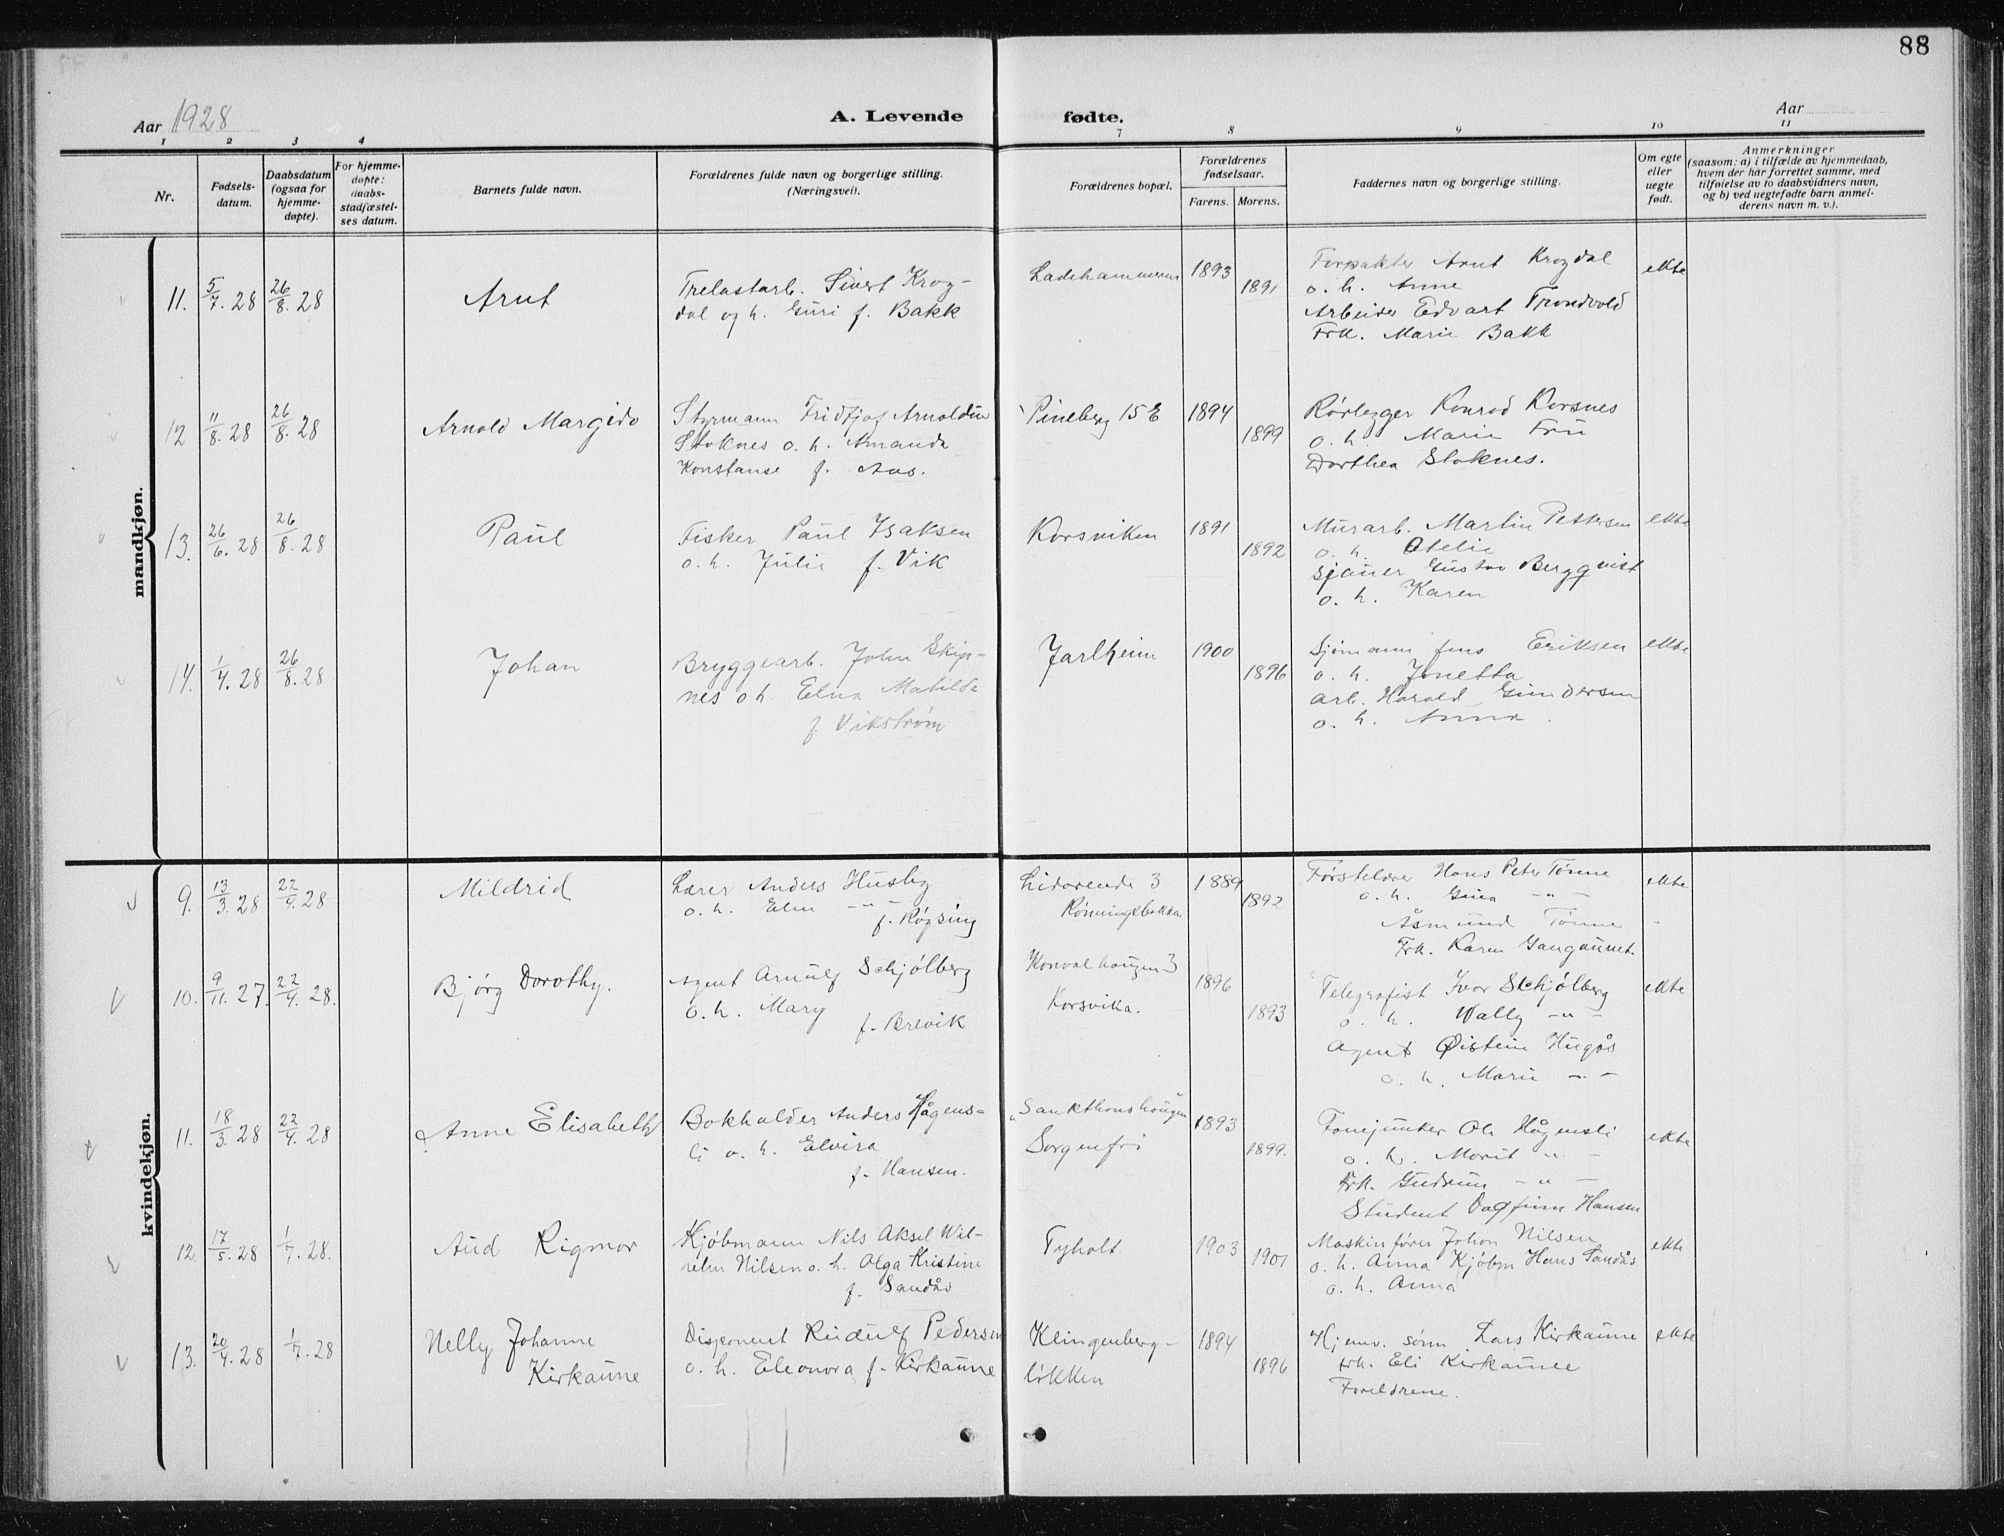 88
Aar 1928
A. Levende
fødte.
Aar
1 2 3 4 7 8 9 10 11
Nr.
Fødsels-
datum.
Daabsdatum
(ogsaa for
hjemme-
døpte).
For hjemme-
døpte:
daabs-
stadfæstel-
ses datum.
Barnets fulde navn.
Forældrenes fulde navn og borgerlige stilling.
(Næringsvei).
Forældrenes bopæl.
Forældrenes
fødselsaar.
Farens. Morens.
Faddernes navn og borgerlige stilling.
Om egte
eller
uegte
født.
Anmerkninger
(saasom: a) i tilfælde av hjemmedaab,
hvem der har forrettet samme, med
tilføielse av to daabsvidners navn,
og b) ved uegtefødte barn anmel-
derens navn m. v.).
mandkjøn.
11. 5/7.28 26/8.28
Arnt
Trelastarb. Sivert Krog-
dal og h. Guri f. Bakk
Ladehammeren
1893
1891
Forpakter Arnt Krogdal
o. h. Anne
Arbeider Edvart Trondvold
Frk. Marie Bakk
ekte
12 11/8.28 26/8.28
Arnold Margido
Styrmann Fridtjof Arnoldin
Stoknes o. h. Amanda
Konstanse f. Aas.
Pineberg 15 E
1894
1899
Rørlegger Konrad Korsnes
o. h. Marie Fru
Dorthea Stoknes.
13. 26/6.28 26/8.28
Paul
Fisker Paul Isaksen
o. h. Julie f. Vik
Korsviken
1891
1892
Murarb. Martin Pettersen
o. h. Otelie
Sjauer Gustav Bergqvist
o. h. Karen
ekte
14. 1/4.28 26/8.28
Johan
Bryggearb. John Skip-
nes o h. Elna Matilde
f. Vikstrøm
Jarlheim
1900
1896
Sjømann Jens Eriksen
o. h. Jonetta
arb. Harald Gundersen
o. h. Anna.
ekte
kvindekjøn.
9. 13/3.28 22/4.28
Mildrid
Lærer Anders Husby
o. h. Elen - " -
f. Røgsing
Lidarende 3
Rønningsbakken
1889
1892
Førstelærer Hans Peter Tønne
o. h. - " -
Åsmund Tønne
Frk. Karen
ekte
10. 9/11.27. 22/4.28.
Bjørg Dorothy.
Agent Arnulf Schjølberg
o. h. Mary
f. Brevik
Konvalhaugen 3
Korsvika.
1896
1893
Telegrafist Ivar Schjølberg
o. h. Wally - " -
Agent Øistein Hugås
o. h. Marie - " -
ekte
11. 18/3.28 22/4.28
Anne Elisabeth
Bokholder Anders Hågens-
li o. h. Elvira
f. Hansen.
Sankthanshaugen
Sorgenfri
1893
1899.
Fanejunker Ole Hågensli
o. h. Marit - " -
Frk. Gudrun - " -
Student Dagfinn Hansen
ekte
12. 17/5.28 1/7.28.
Aud Rigmor
Kjøbmann Nils Aksel Wil-
helm Nilsen o. h. Olga Kristine
f. Sandås
Tyholt
1903
1901
Maskinfører Johan Nilsen
o. h. Anna Kjøbm Hans Sandås
o. h. Anna
ekte
13. 20/4.28 1/7.28
Nelly Johanne
Kirkaune
Disponent Rindulf Pedersen
o. h. Eleonora f. Kirkaune
Klingenberg-
løkken
1894
1896
Hjemv. sønn Lars Kirkaune
frk. Eli Kirkaune
Foreldrene.
ekte